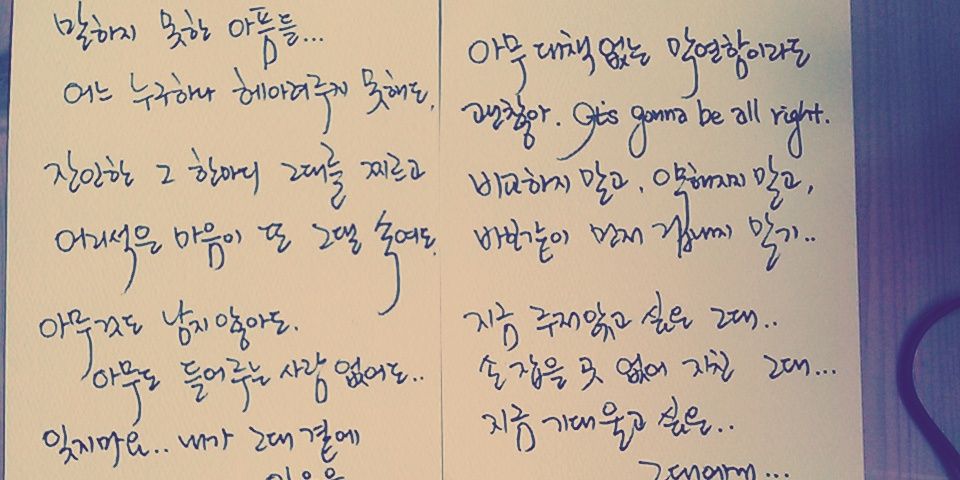 말하지 못한 아픔들...
어느 누구하나 헤아려주지 못해도,
잔인한 그 한마디 그대를 찌르고
어리석은 마음이 또 그댈 속여도
아무것도 남지 않아도.
아무도 들어주는 사람 없어도..
잊지마요.. 내가 그대 곁에
있음을
아무 대책 없는 막연함이라도
괜찮아. It's gonna be all right.
비교하지 말고, 약해지지 말고,
바보같이 먼저 겁내지 말기..
지금 주저앉고 싶은 그대..
손 잡을 곳 없어 지친 그대...
지금 기대 울고 싶은..
그대에게...